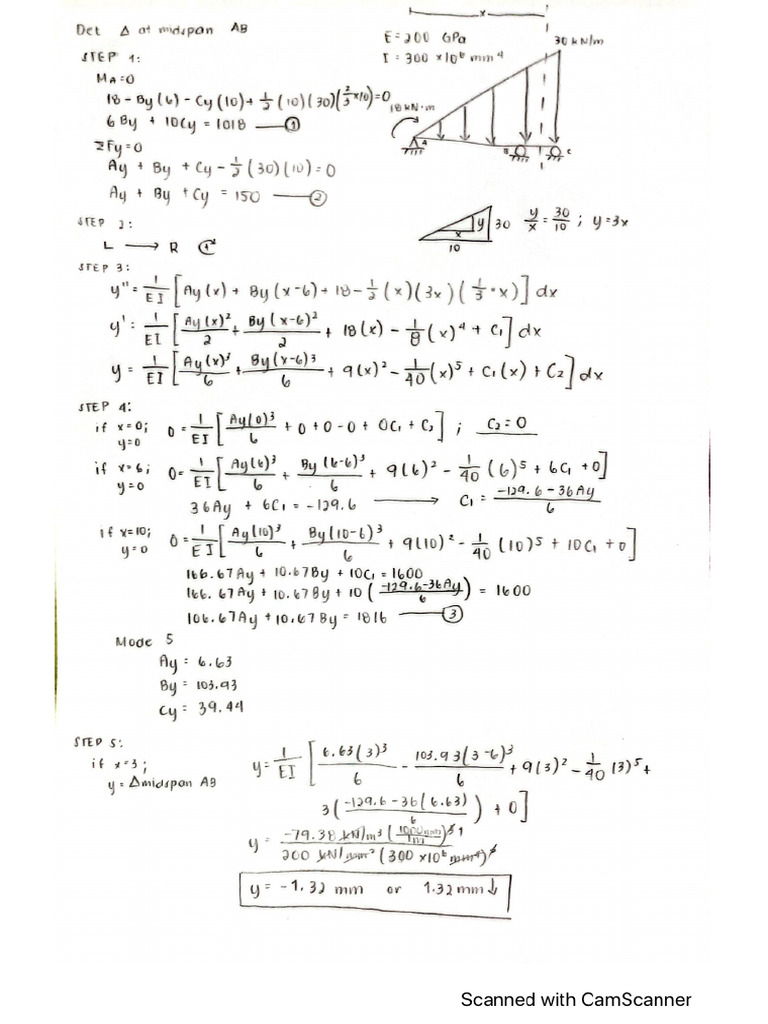 Det Δ at midspan AB
x
E = 200 GPa
I = 300 × 10⁶ mm⁴
30 kN/m
18 kN·m
A
B
C
STEP 1:
MA = 0
18 - By(6) - Cy(10) + ½(10)(30)(⅔×10) = 0
6By + 10Cy = 1018 —— ①
ΣFy = 0
Ay + By + Cy - ½(30)(10) = 0
Ay + By + Cy = 150 —— ②
y 30
x
10
y/x = 30/10 ; y = 3x
STEP 2:
L → R
STEP 3:
y" = 1/EI [Ay(x) + By(x-6) + 18 - ½(x)(3x)(⅓·x)] dx
y' : 1/EI [Ay(x)²/2 + By(x-6)²/2 + 18(x) - 1/8(x)⁴ + C₁] dx
y = 1/EI [Ay(x)³/6 + By(x-6)³/6 + 9(x)² - 1/40(x)⁵ + C₁(x) + C₂] dx
STEP 4:
if x=0; y=0 0 = 1/EI [Ay(0)³/6 + 0 + 0 - 0 + 0C₁ + C₂] ; C₂ = 0
if x=6; y=0 0 = 1/EI [Ay(6)³/6 + By(6-6)³/6 + 9(6)² - 1/40(6)⁵ + 6C₁ + 0]
36Ay + 6C₁ = -129.6 → C₁ = (-129.6 - 36Ay)/6
if x=10; y=0 0 = 1/EI [Ay(10)³/6 + By(10-6)³/6 + 9(10)² - 1/40(10)⁵ + 10C₁ + 0]
166.67Ay + 10.67By + 10C₁ = 1600
166.67Ay + 10.67By + 10((-129.6-36Ay)/6) = 1600
106.67Ay + 10.67By = 1816 —— ③
Mode 5
Ay = 6.63
By = 103.93
Cy = 39.44
STEP 5:
if x=3;
y = Δmidspan AB
y = 1/EI [6.63(3)³/6 - 103.93(3-6)³/6 + 9(3)² - 1/40(3)⁵ +
3((-129.6-36(6.63))/6) + 0]
y = -79.38 kN/m³(1000mm/1m)³/200 kN/mm²(300 × 10⁶ mm⁴)
y = -1.32 mm or 1.32 mm ↓
Scanned with CamScanner